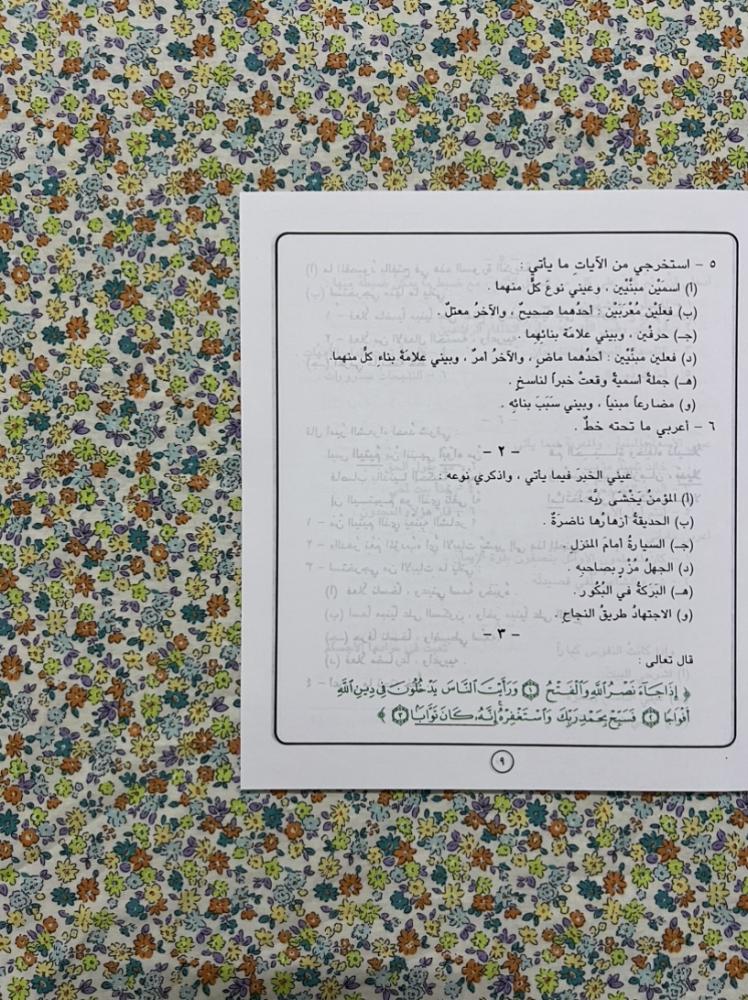 ٥ – استخرجي من الآياتِ ما يأتي :
(أ) اسمَيْن مبنيَّيْن ، وعيني نوعَ كلٍّ منهما .
(ب) فعلَيْن مُعْربَين : أحدُهما صحيحٌ ، والآخرُ معتلٌ .
(جـ) حرفَين ، وبيني علامَة بنائهما .
(د) فعلين مبنيَّيْن : أحدُهما ماضٍ ، والآخرُ أمرٌ ، وبيني علامةَ بناءِ كلٍّ منهما.
(هـ) جملةً اسميةً وقعتْ خبراً لناسخٍ .
(و) مضارعاً مبنياً ، وبيني سَبَبَ بنائِه .
٦ – أعربي ما تحته خطٌ .
– ٢ –
عيني الخبرَ فيما يأتي ، واذكري نوعَه :
(أ) المؤمنُ يَخْشَى ربَّه .
(ب) الحديقةُ أزهارُها ناضرَةٌ .
(جـ) السيارةُ أمامَ المنزلِ .
(د) الجهلُ مُزْرٍ بصاحبِه .
(هـ) البَرَكةُ في البُكُورِ .
(و) الاجتهادُ طريقُ النجاحِ .
– ٣ –
قال تعالى :
﴿ إِذَا جَآءَ نَصْرُ ٱللَّهِ وَٱلْفَتْحُ ۝١ وَرَأَيْتَ ٱلنَّاسَ يَدْخُلُونَ فِى دِينِ ٱللَّهِ
أَفْوَاجًا ۝٢ فَسَبِّحْ بِحَمْدِ رَبِّكَ وَٱسْتَغْفِرْهُ إِنَّهُۥ كَانَ تَوَّابًا ۝٣ ﴾
٩